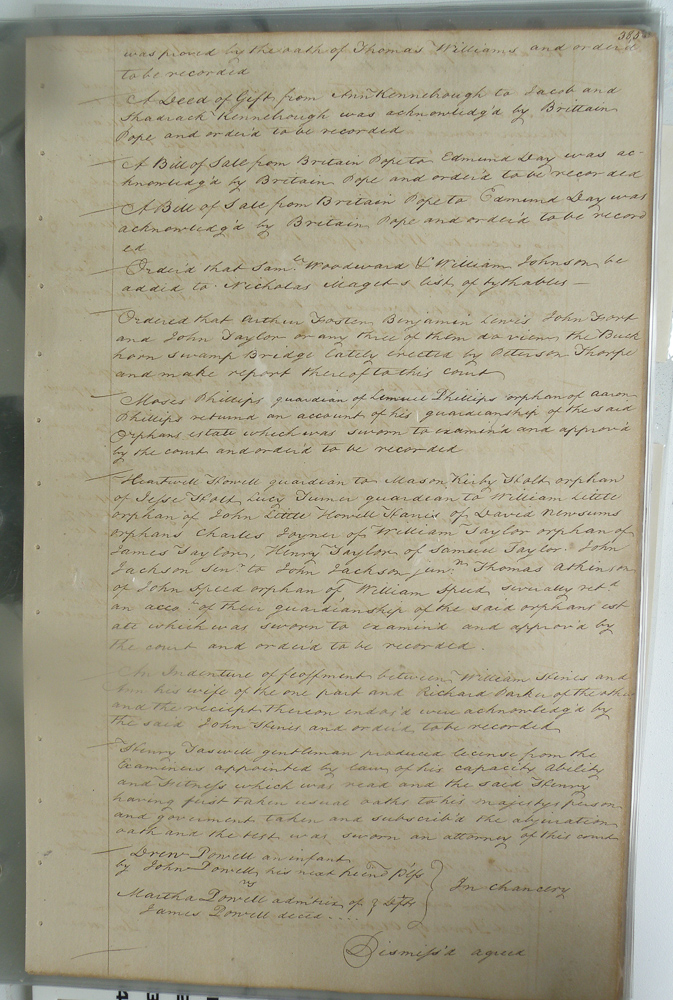 385
was proved by the oath of Thomas Williams and order'd
to be recorded
A Deed of Gift from Ann Kennebrough to Jacob and
Shadrack Kennebrough was acknowledg'd by Brittain
Pope and order'd to be recorded
A Bill of Sale from Britain Pope to Edmund Day was ac-
knowledg'd by Britain Pope and order'd to be recorded
A Bill of Sale from Britain Pope to Edmund Day was
acknowledg'd by Britain Pope and order'd to be record
ed
Order'd that Saml Woodward & William Johnson be
added to Nicholas Magets list of tythables —
Ordered that Arthur Foster Benjamin Lewis John Fort
and John Taylor or any three of them do view the Buck
horn Swamp Bridge lately Erected by Peterson Thorpe
and make report thereof to this court
Moses Phillips guardian of Lemuel Phillips orphan of Aaron
Phillips returnd an account of his guardianship of the said
Orphans estate which was sworn to examin'd and approv'd
by the court and order'd to be recorded
Heartwell Howell guardian to Mason Kirby Holt orphan
of Jesse Holt Lucy Turner guardian to William Little
orphan of John Little Howell Harris of David Newsums
orphans Charles Joyner of William Taylor orphan of
James Taylor, Henry Taylor of Samuel Taylor. John
Jackson Senr to John Jackson junr Thomas Atkinson
of John Speed orphan of William Speed, severally retd
an acco. of their guardianship of the said orphans est
ate which was sworn to examin'd and approv'd by
the court and order'd to be recorded.
An Indenture of feoffment between William Hines and
Ann his wife of the one part and Richard Parker of the other
and the reciept thereon endos'd were acknowledg'd by
the said John Hines and order'd to be recorded
Henry Taswell gentleman produced license from the
Examiners appointed by law of his capacity Ability
and Fitness which was read and the said Henry
having first taken usual oaths to his majestys person
and goverment taken and subscrib'd the abjuration
oath and the test was sworn an attorney of this court
Drew Powell an infant
by John Powell his next friend Plfs
vs
In chancery
Martha Powell admitrix of Defts
James Powell deced....
Dismiss'd agreed